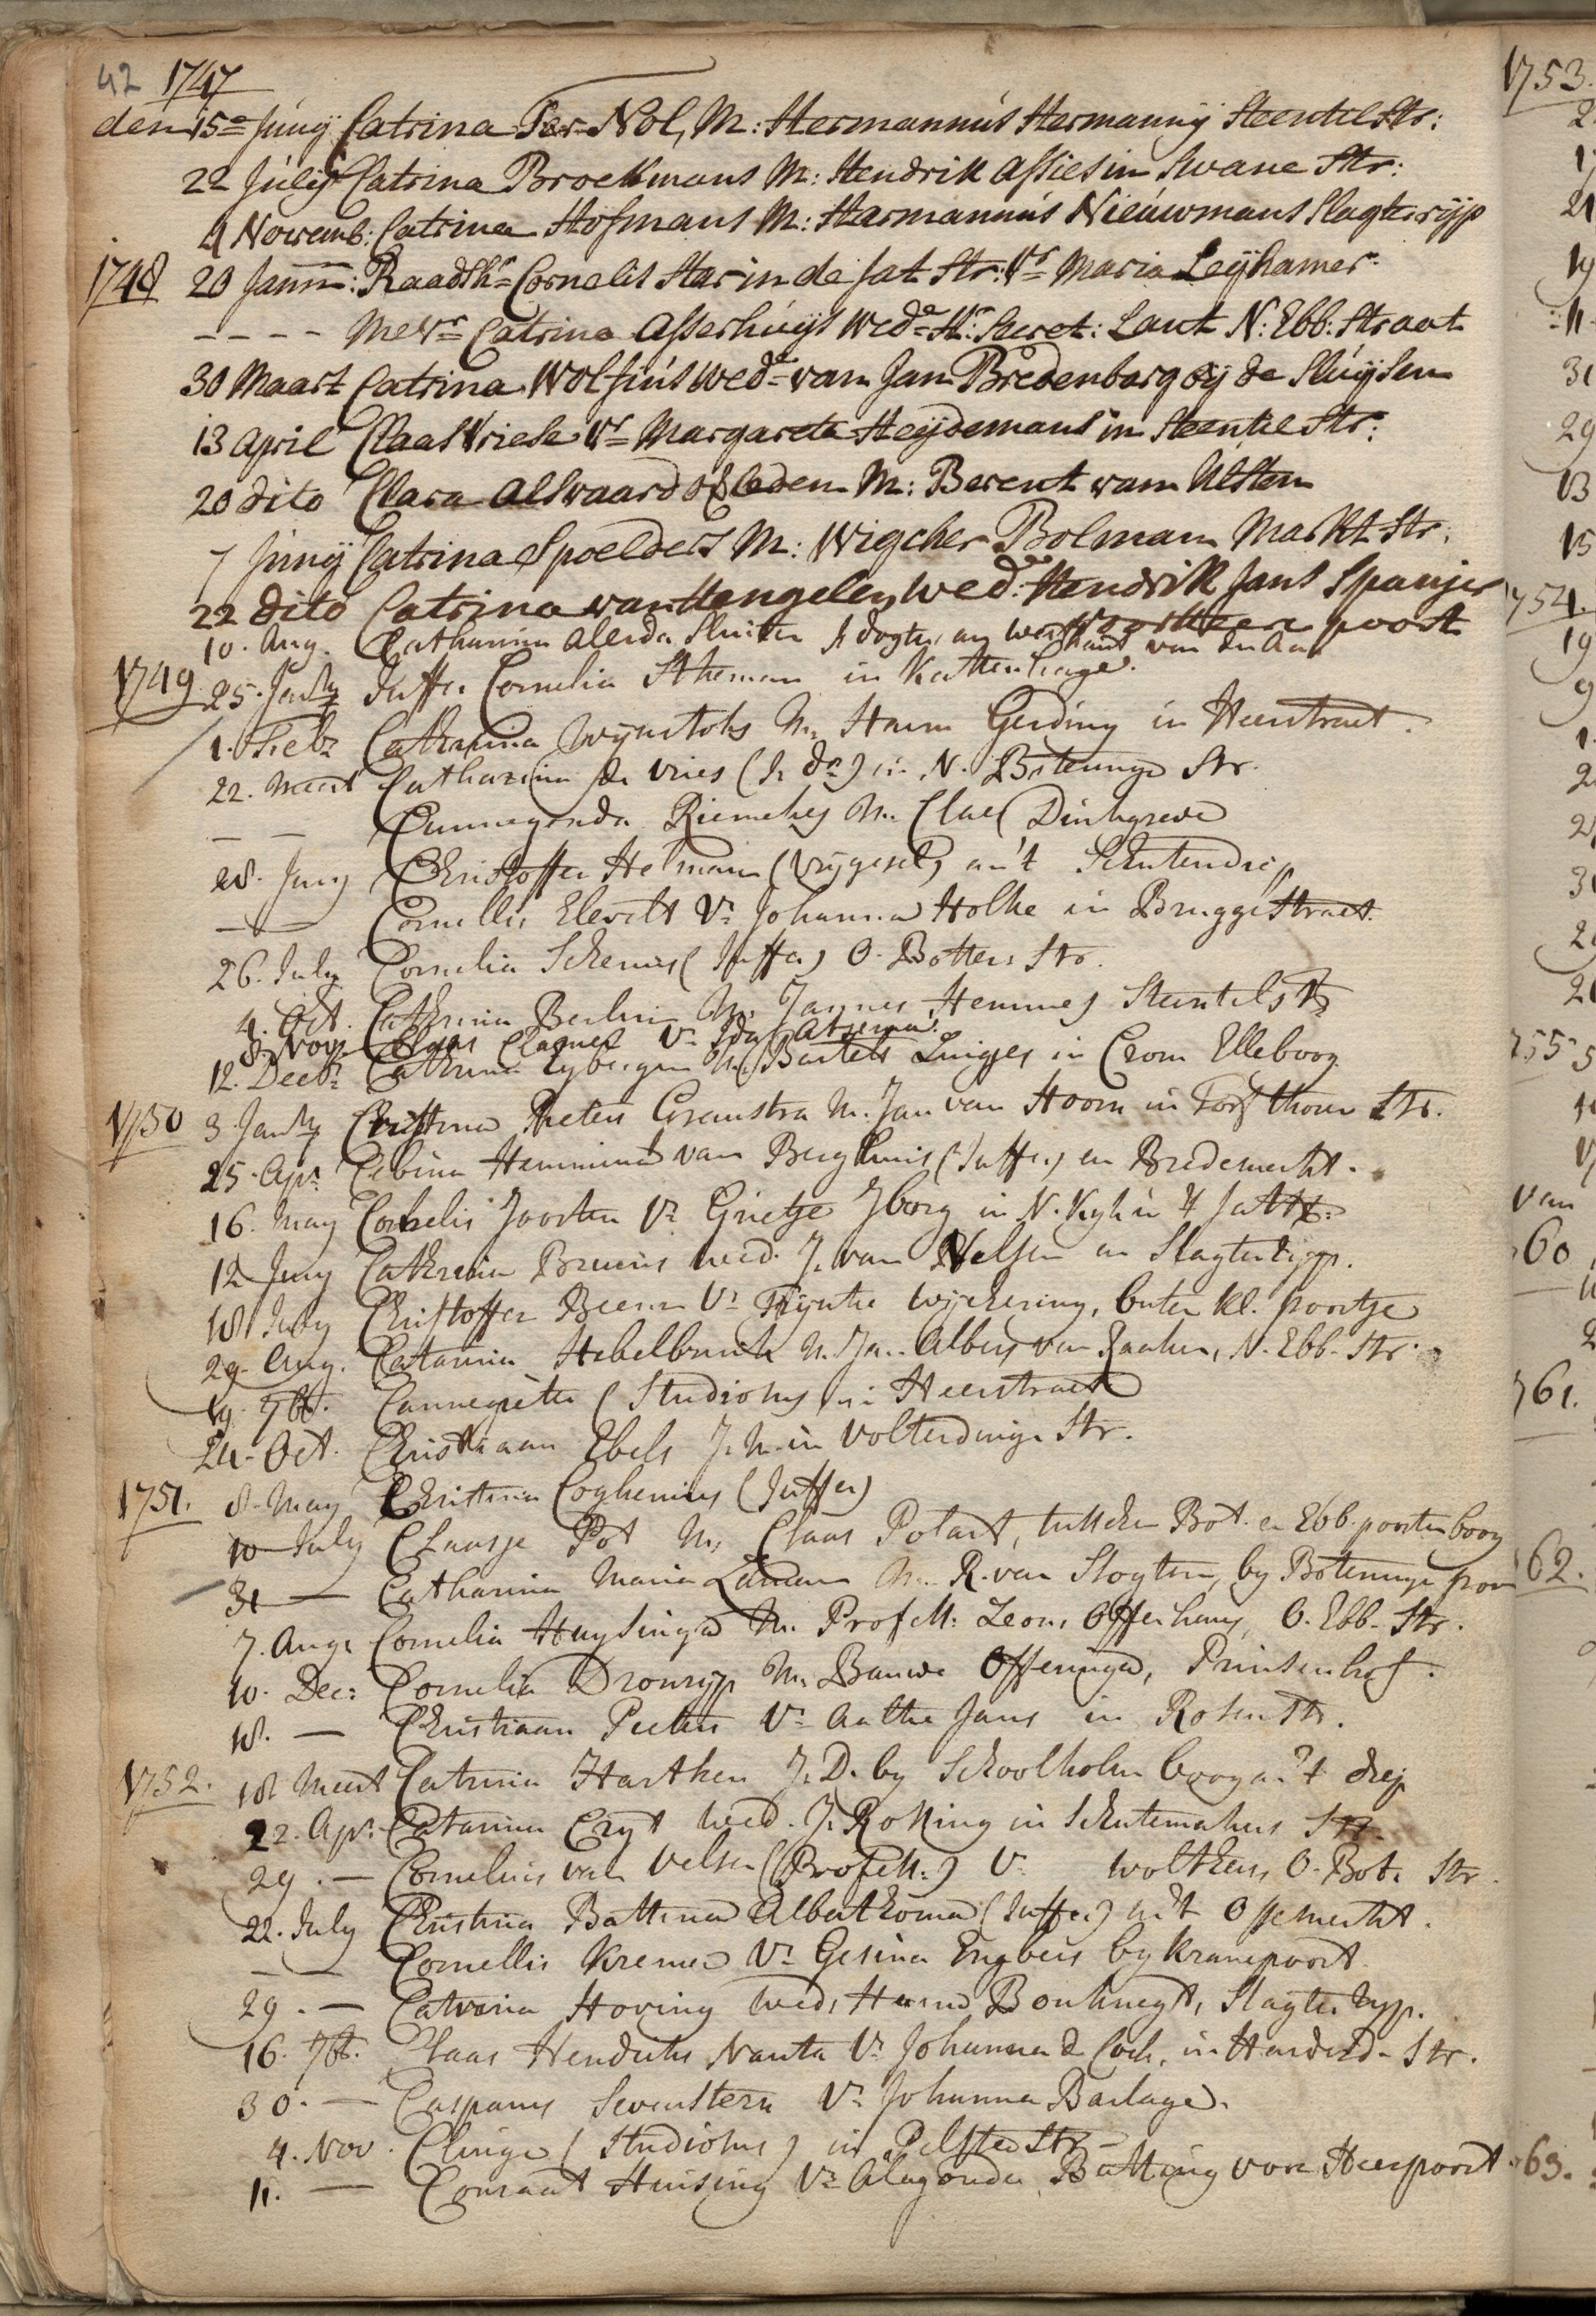 42 1747
den 15 Junij Catrina Ter Nol, M: Hermannus Hermannij Steentilstr:
22 Julij Catrina Broekmans M: Hendrik Assies in Swane Str:
4 Novemb: Catrina Hofmans M: Harmannus Nieuwmans Slagterrijp
1748 20 Jann: Raadshr Cornelis Star in de Jat Str: Vr Maria Leijhamer
---- Mevr Catrina Asserhuijs Wede Hr: Secret: Lant N: Ebb: Straat
30 Maart Catrina Wolfius Wede van Jan Bredenborg bij de Sluijsen
13 April Claas Vriese Vr Margareta Heijdemans in Steentil Str:
20 dito Clara Alsvaard M: Berent van Ulsten
7 Junij Catrina Spoelders M: Wigcher Bolman Markt Str:
22 dito Catrina van Hengelen, Wed: Hendrik Jans Spanjer
poort
10. Aug. Catharina Alerda Sluiter J. dogter, an van der Aa
1749 25. Janry Juffr Cornelia Stheman in Kattenhage
1. Febr Catharina M. Harm Gerding in Heerstraet.
22. Meert Catharina de Vries (J. dr) in N. Boteringe Str.
— — Cunnegonda Riemekes M. Claes Dinkgreve
28. Juny Christoffer Helman (vrijgesel) an't Schuitendiep
— Cornellis Elevelt Vr Johanna Holke in Brugge Straet
26. July Cornelia (Juffer) O. Botter. Str.
4. Oct. Cathrina Berlin M. Jannes Hemmes Steentilstr
8. Nov. Claas Claesses Vr Ida Atzema
12. Decbr Cathrina M. Bartelt Luitjes in Crom Elleboog
1750 3. Janry Christina Pieters M. Jan van Hoorn in Str.
25. Apr. Hemmina van Berghuis (Juffer) an Bredemerkt.
16. May Cornelis Joosten Vr Grietje Iborg in N. Kyk in 't Jatstr.
12 Juny Cathrina Bruins wed. J. van Velsen an Slagterrijp.
18 July Christoffer Vr Trijntie Wyckering, buten kl. poortje
29. Aug. Catarina Hebelbrink M. Jan Albers van Raalten, N. Ebb. Str.
19. 7br. Cannegieter (Studiosus) in Heerstraet
24. Oct. Christiaan Ebels J. M. in Volteringe Str.
1751. 8. May Christina Coghenius (Juffer)
10 July Claasje Pot M. Claas Polart, tusschen Bot. en Ebb. poorten boog
31 — Catharina Maria Laman M. R. van Slogten, by Boteringe poor
7. Aug. Cornelia Huysinga M. Profess: Leon. Offerhaus, O. Ebb. Str.
10. Dec: Cornelia Dronryp M. Bauwe Offeringa, Prinsenhof.
18. — Christiaan Pieters Vr Aaltie Jans in Rosenstr.
1752. 18 Meert Catrina Harthen J. D. by Schoolholm boog an 't diep
22. Apr. Catarina Cryt wed. J. Roking in Schuitemakers Str.
29. — Cornelius van Velsen (Profess.) V. Wolthers, O. Bot. Str.
22. July Christina Battina Alberthoma (Juffer) an't Ossemerkt.
— Cornellis Kremer Vr Gesina Engbers by Kranepoort.
29. — Catrina Hoving wed. Harm Bonknegt, Slagterryp.
16. 7br. Claas Hendriks Nanta Vr Johanna de Cock, in Harderd. Str.
30. — Casparus Sevenstern Vr Johanna Barlage.
4. Nov. Clinge (Studiosus) in Pelster Str.
11. — Conraat Huising Vr Alagonda Batting voor Heerpoort
1753.
2
1
21
19
11
31
29
13
15
754.
19
9
1.
2
2
3
2
2
755 5
1
Van
60
761.
62.
63.